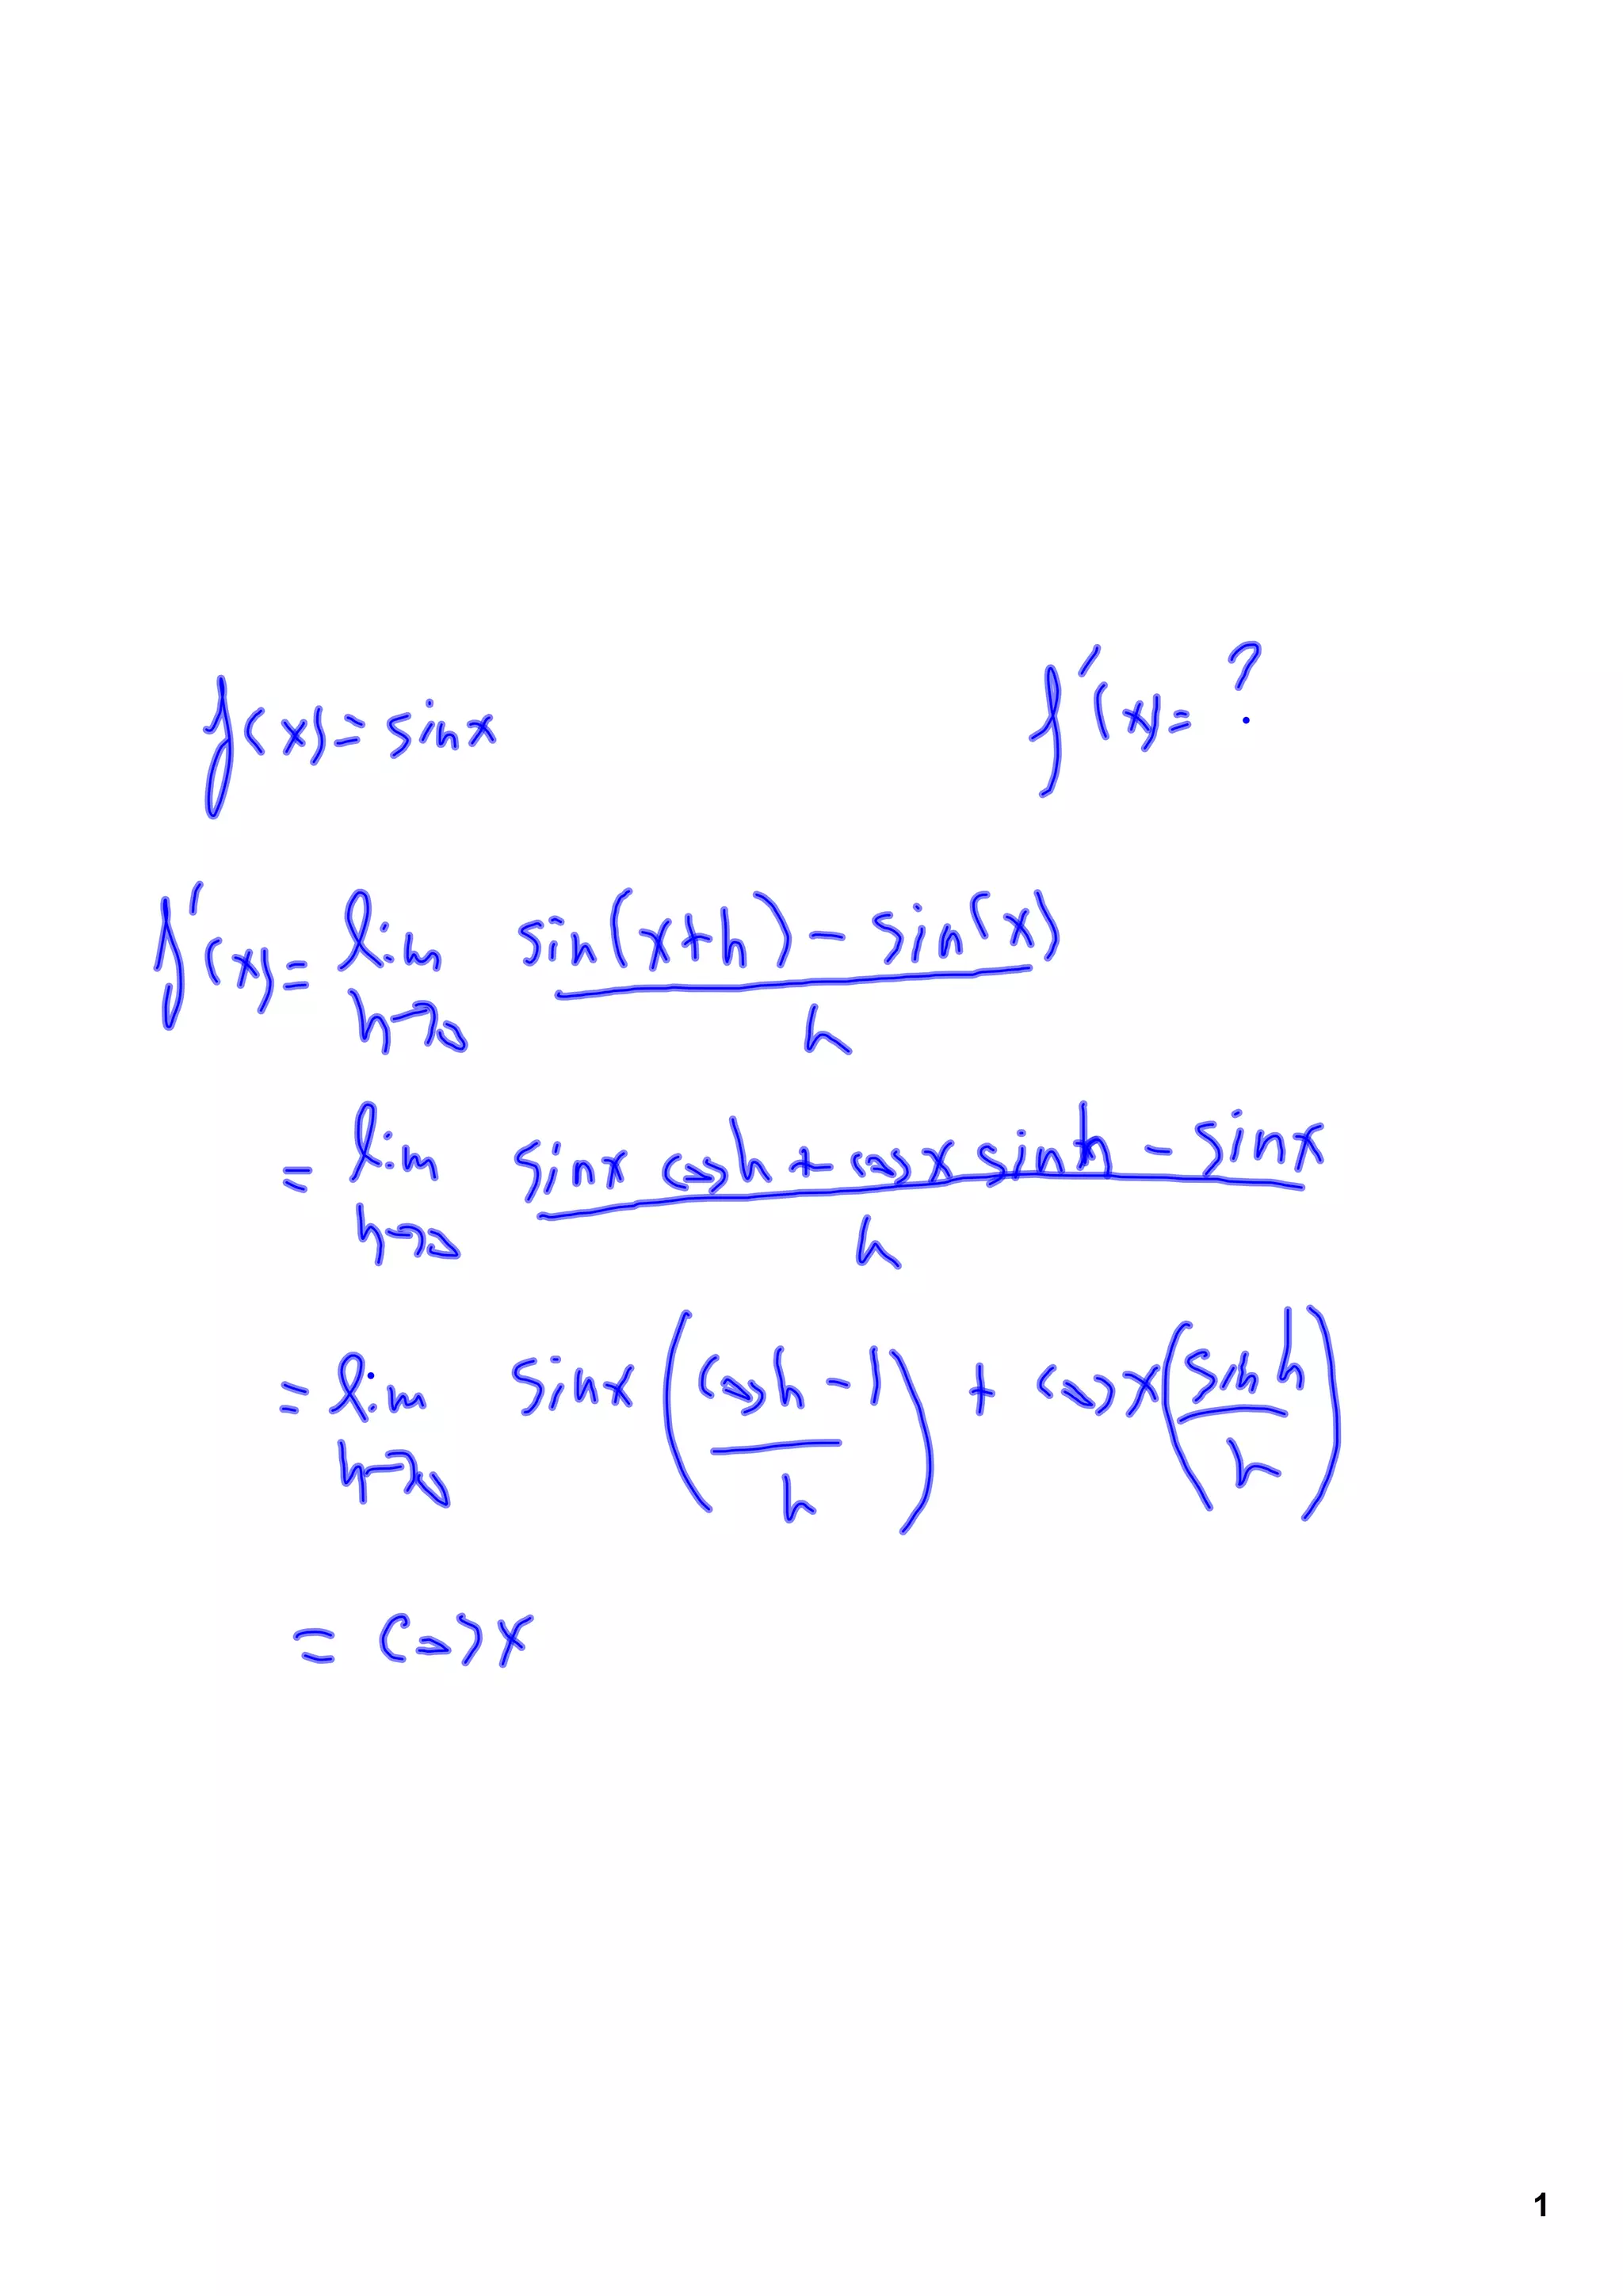 f(x) = sinx f'(x) = ?
f'(x) = lim h→0 (sin(x+h) - sin(x)) / h
= lim h→0 (sinx cosh + cosx sinh - sinx) / h
= lim h→0 sinx ((cosh - 1) / h) + cosx (sinh / h)
= cosx
1